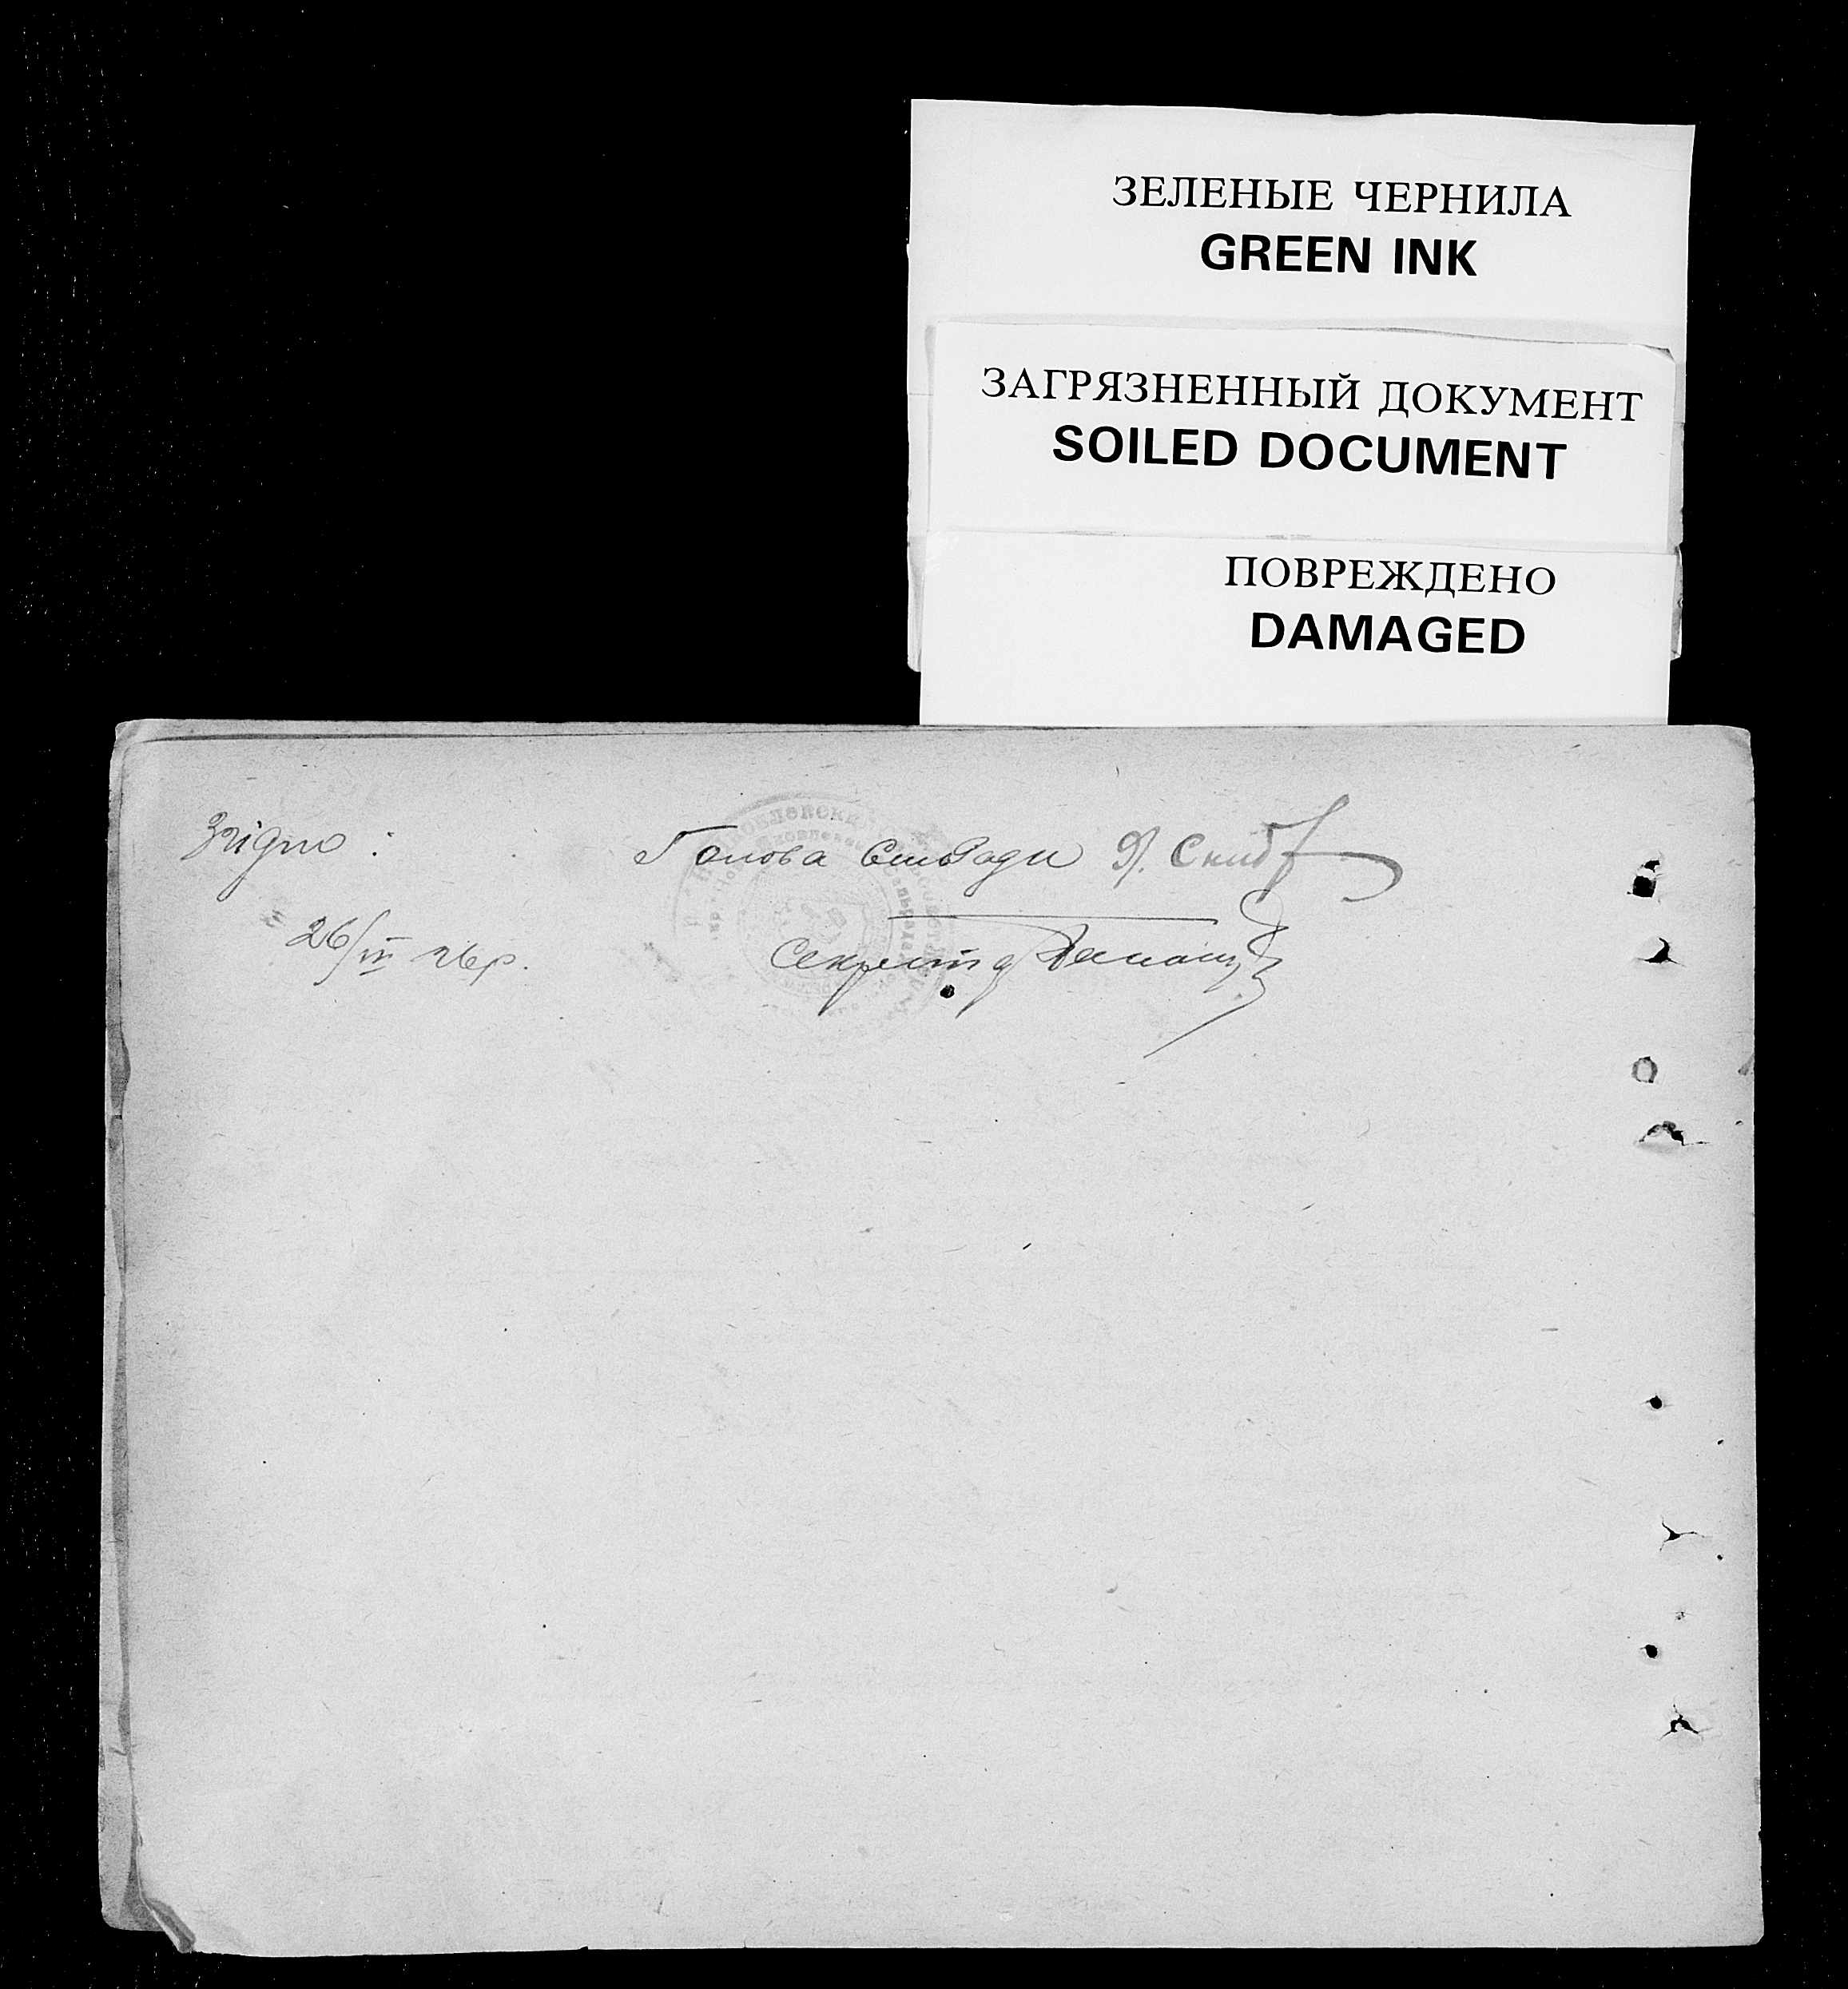 ЗЕЛЕНЫЕ ЧЕРНИЛА
GREEN INK
ЗАГРЯЗНЕННЫЙ ДОКУМЕНТ
SOILED DOCUMENT
ПОВРЕЖДЕНО
DAMAGED
Згідно :
Голова Сільради
26/III 26р.
Секретар